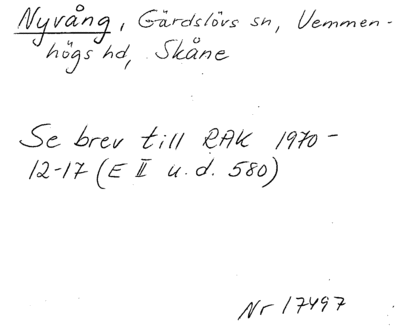 Nyvång, Gärdslövs sn, Vemmen-
högs hd, Skåne
Se brev till RAK 1970-
12-17 (E II u.d. 580)
Nr 17497